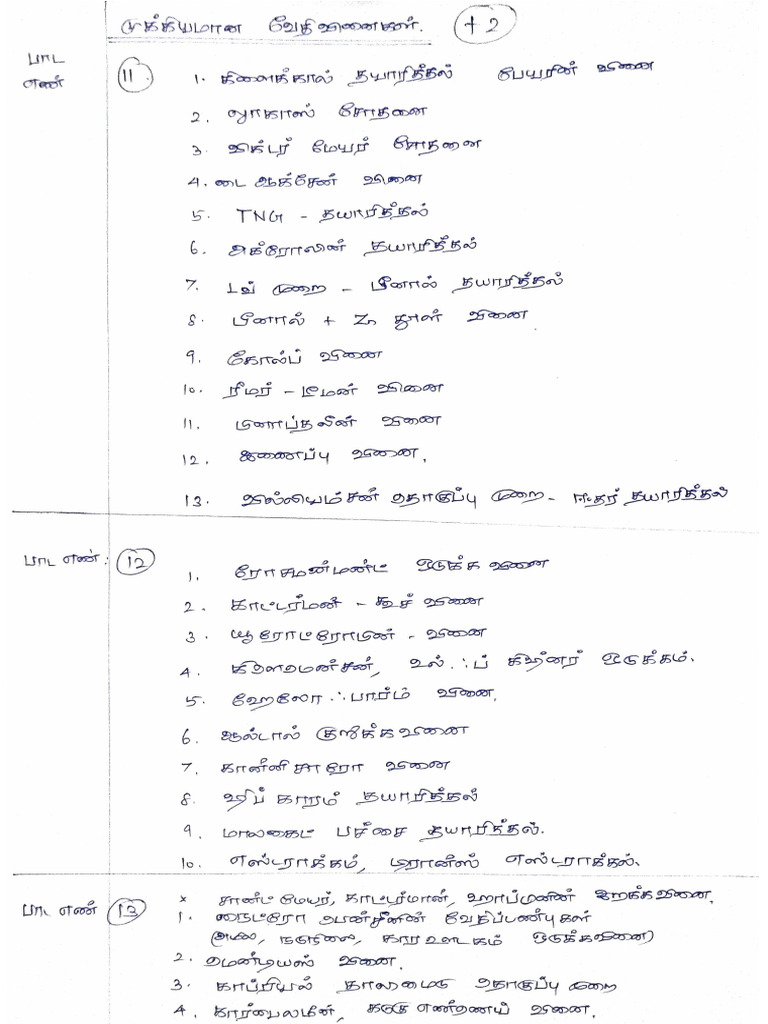 முக்கியமான வேதிவினைகள். +2
பாட எண் 11.
1. கிளைக்கால் தயாரித்தல் பேயரின் வினை
2. லூகாஸ் சோதனை
3. விக்டர் மேயர் சோதனை
4. டை ஆக்சேன் வினை
5. TNG - தயாரித்தல்
6. அக்ரோலின் தயாரித்தல்
7. டவ் முறை - பீனால் தயாரித்தல்
8. பீனால் + Zn தூள் வினை
9. கோல்ப் வினை
10. ரீமர் - டீமன் வினை
11. தாலின் வினை
12. இணைப்பு வினை.
13. வில்லியம்சன் தொகுப்பு முறை - ஈதர் தயாரித்தல்
பாட எண் : 12
1. ரோசன்மண்ட் ஒடுக்க வினை
2. காட்டர்மன் - கூச் வினை
3. யூரோட்ரோபின் - வினை
4. கிளெமன்சன், உல்ஃப் கிஷ்னர் ஒடுக்கம்.
5. ஹேலோஃபார்ம் வினை.
6. ஆல்டால் குறுக்க வினை
7. கான்னிசாரோ வினை
8. ஷிப் காரம் தயாரித்தல்
9. மாலகைட் பச்சை தயாரித்தல்.
10. எஸ்டராக்கம், டிரான்ஸ் எஸ்டராக்கல்.
பாட எண் 13
x சாண்ட் மேயர், காட்டர்மான், ஹாப்மனின் இறக்க வினை.
1. நைட்ரோ பென்சீனின் வேதிப்பண்புகள்
(அமில, நடுநிலை, கார ஊடகம் ஒடுக்கவினை)
2. மெண்டியஸ் வினை.
3. காப்ரியல் தாலமைடு தொகுப்பு முறை
4. கார்பைலமீன், கடுகு எண்ணெய் வினை.